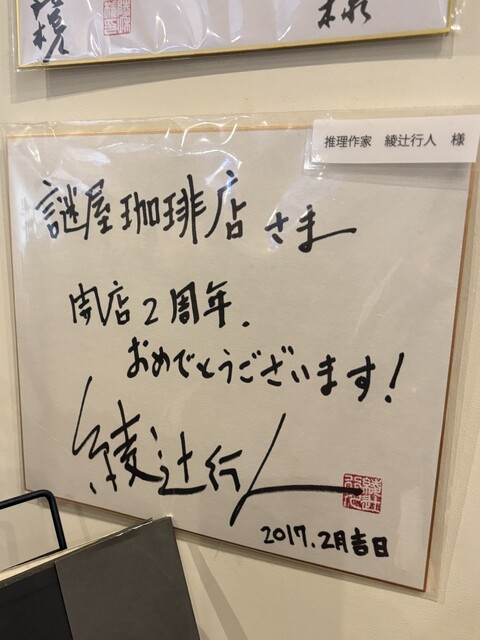 様
推理作家 綾辻行人 様
謎屋珈琲店さま
開店2周年.
おめでとうございます!
綾辻行人
2017.2月吉日